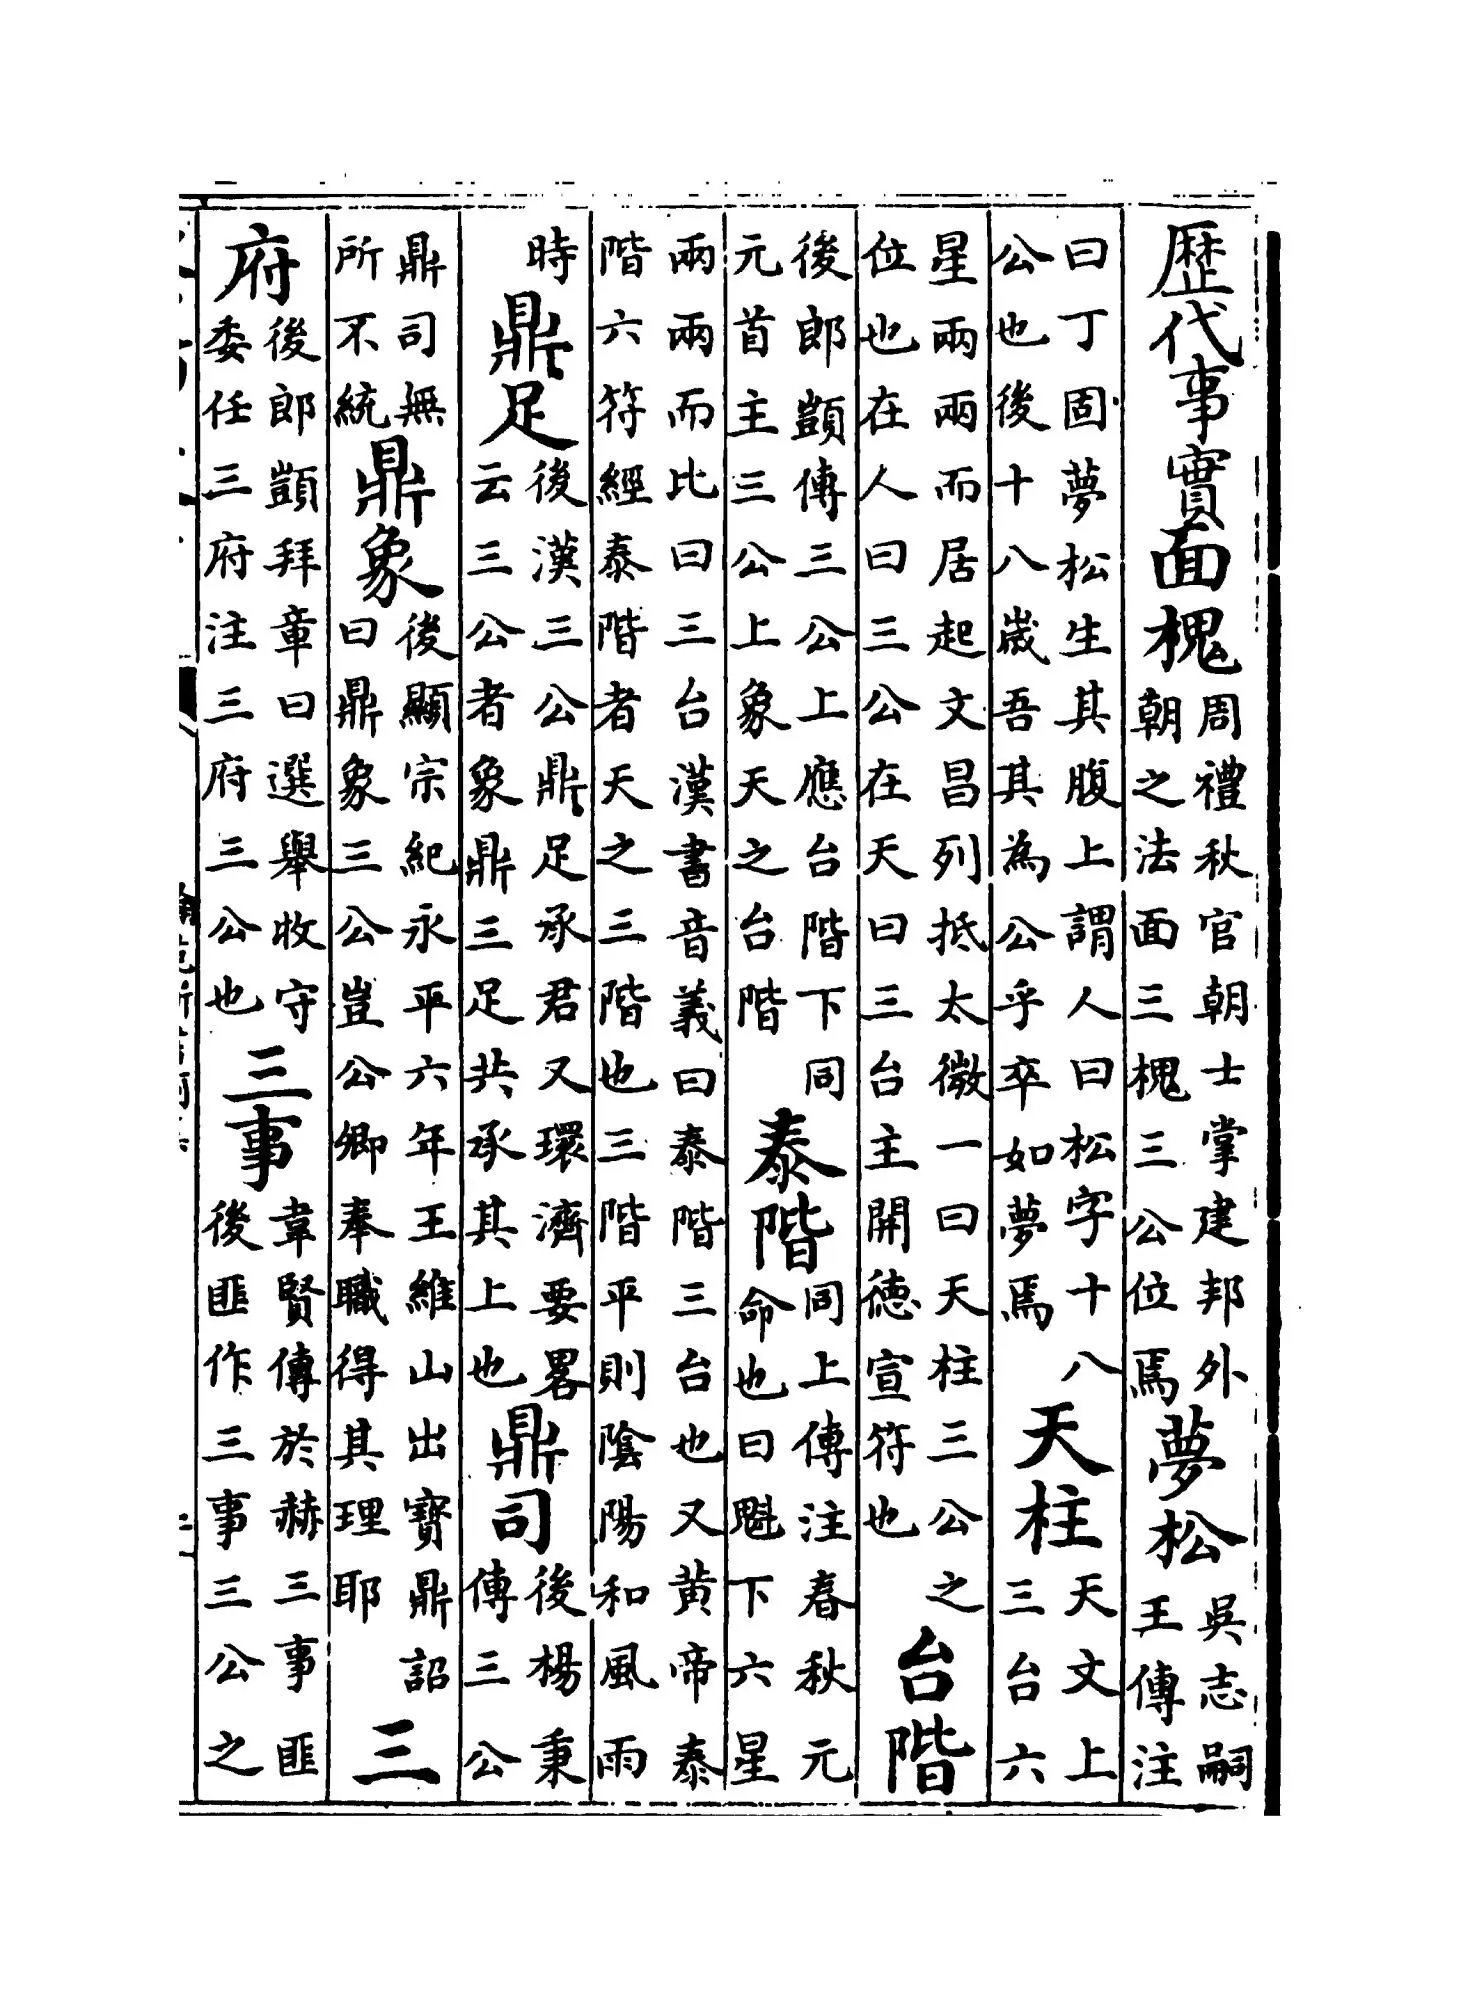 歴代事實面槐周禮秋官朝士掌建邦外朝之法面三槐三公位焉夢松吳志嗣王傳注
曰丁固夢松生其腹上謂人曰松字十八公也後十八歲吾其為公乎卒如夢焉天柱天文上三台六
星兩兩而居起文昌列抵太微一曰天柱三公之位也在人曰三公在天曰三台主開德宣符也台階
後郎顗傳三公上應台階下同元首主三公上象天之台階泰階同上傳注春秋元命也曰魁下六星
兩兩而比曰三台漢書音義曰泰階三台也又黄帝泰階六符經泰階者天之三階也三階平則陰陽和風雨
時鼎足後漢三公鼎足承君又環濟要畧云三公者象鼎三足共承其上也鼎司後楊秉傳三公
鼎司無所不統鼎象後顯宗紀永平六年王維山出寶鼎詔曰鼎象三公豈公卿奉職得其理耶三
府後郎顗拜章曰選舉收守委任三府注三府三公也三事韋賢傳於赫三事匪後匪作三事三公之